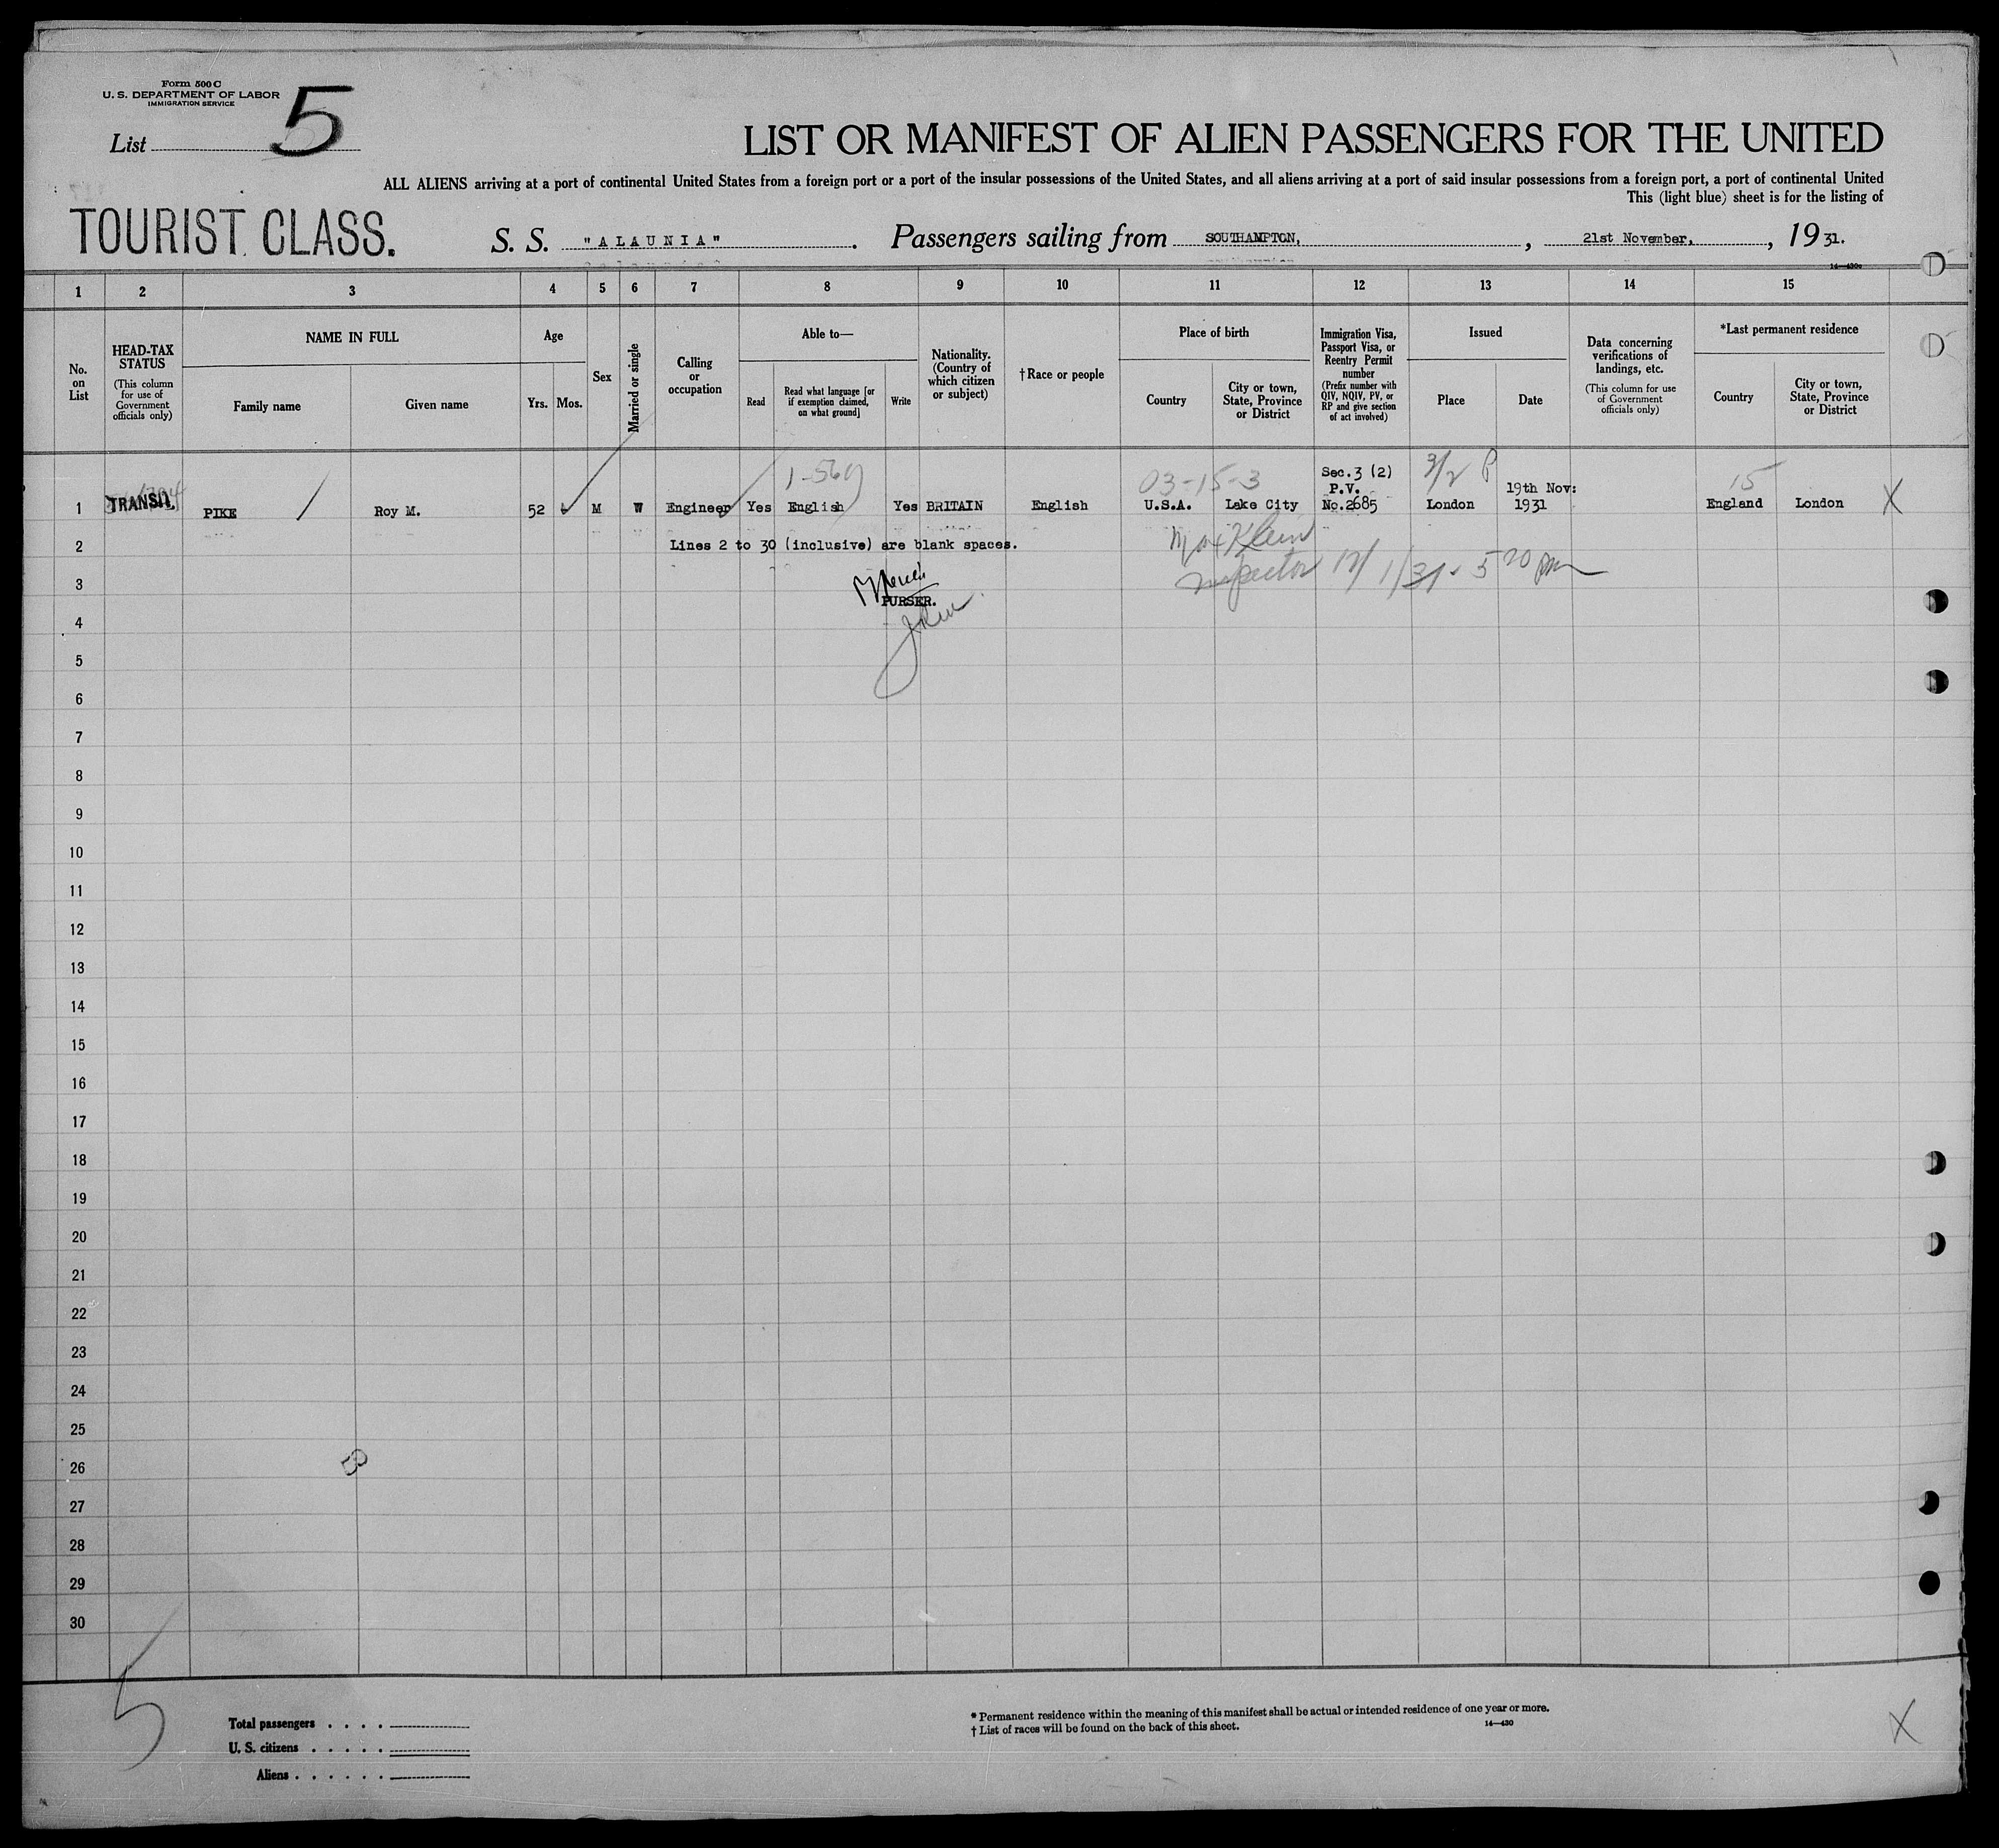 Form 500 C
U. S. DEPARTMENT OF LABOR
IMMIGRATION SERVICE
List 5
LIST OR MANIFEST OF ALIEN PASSENGERS FOR THE UNITED
ALL ALIENS arriving at a port of continental United States from a foreign port or a port of the insular possessions of the United States, and all aliens arriving at a port of said insular possessions from a foreign port, a port of continental United
This (light blue) sheet is for the listing of
TOURIST CLASS. S. S. "ALAUNIA". Passengers sailing from SOUTHAMPTON, , 21st November, , 19 31.
14—430c
1 2 3 4 5 6 7 8 9 10 11 12 13 14 15
No. on List
HEAD-TAX STATUS
(This column for use of Government officials only)
NAME IN FULL
Family name Given name
Age
Yrs. Mos.
Sex
Married or single
Calling or occupation
Able to—
Read
Read what language [or if exemption claimed, on what ground]
Write
Nationality. (Country of which citizen or subject)
†Race or people
Place of birth
Country
City or town, State, Province or District
Immigration Visa, Passport Visa, or Reentry Permit number
(Prefix number with QIV, NQIV, PV, or RP and give section of act involved)
Issued
Place Date
Data concerning verifications of landings, etc.
(This column for use of Government officials only)
*Last permanent residence
Country
City or town, State, Province or District
03-15-3 3/2 P 15
Sec.3 (2)
P.V. 19th Nov:
1 TRANSIT. PIKE / Roy M. 52 M W Engineer Yes English Yes BRITAIN English U.S.A. Lake City No.2685 London 1931 England London X
2 Lines 2 to 30 (inclusive) are blank spaces. Max Klein
3 Inspector 12/1/31 - 5 20 pm
PURSER.
4
5
6
7
8
9
10
11
12
13
14
15
16
17
18
19
20
21
22
23
24
25
26
27
28
29
30
5
Total passengers . . . .
U. S. citizens . . . . .
Aliens . . . . . .
* Permanent residence within the meaning of this manifest shall be actual or intended residence of one year or more.
† List of races will be found on the back of this sheet. 14—430
X